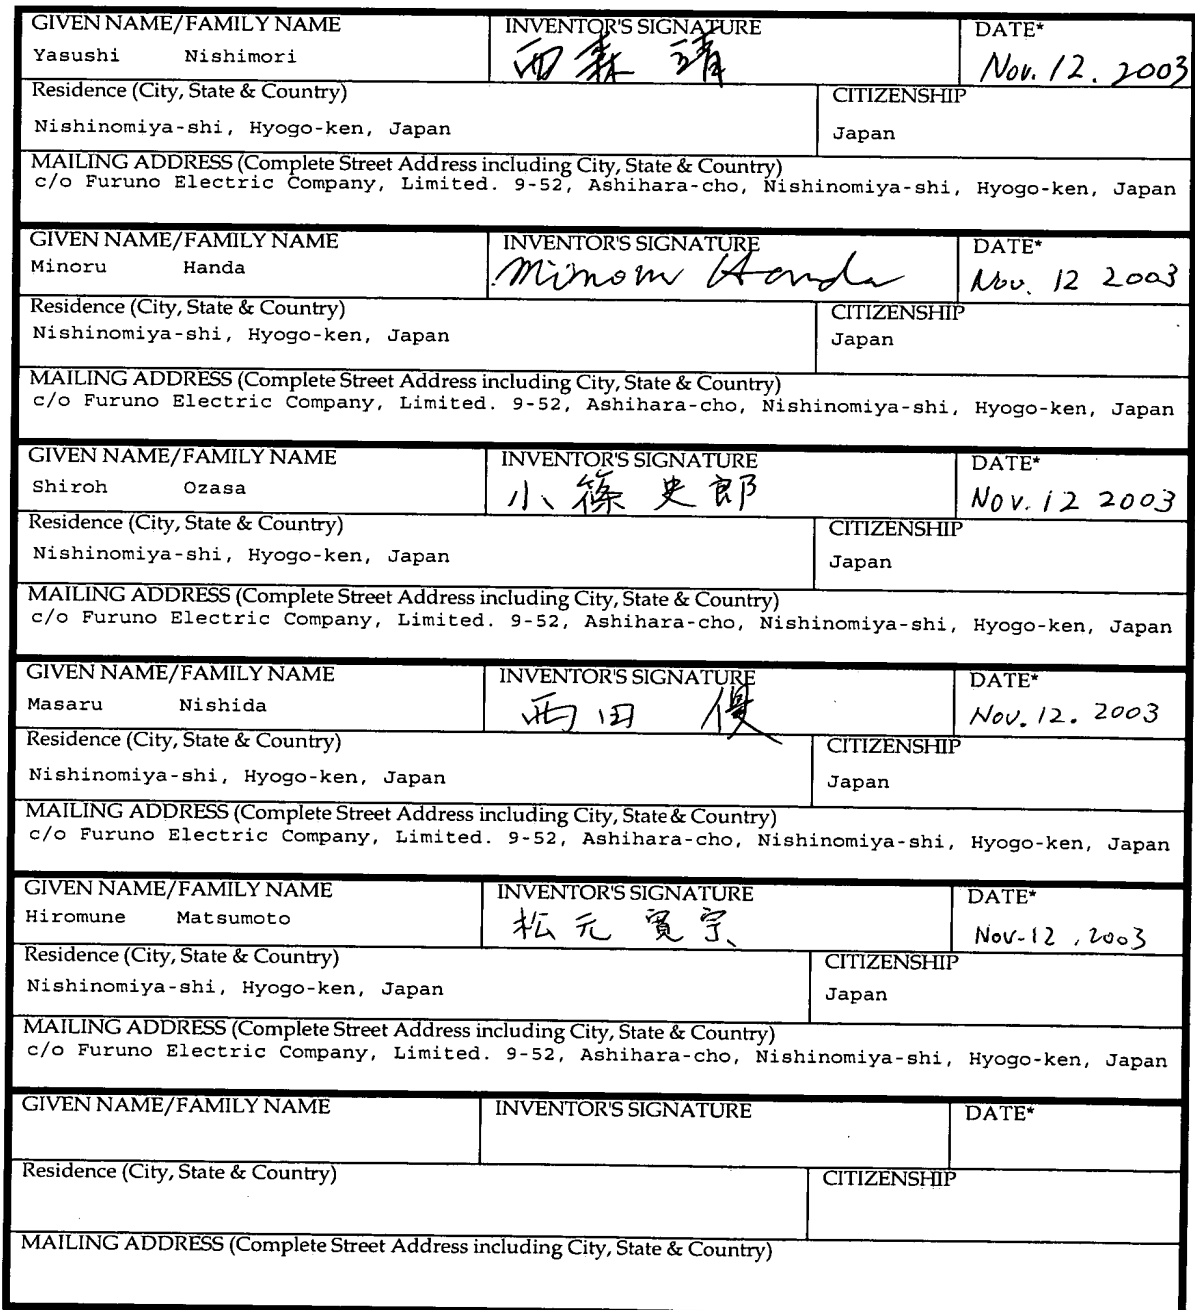 GIVEN NAME/FAMILY NAME INVENTOR'S SIGNATURE DATE*
Yasushi Nishimori 西森 靖 Nov. 12. 2003
Residence (City, State & Country) CITIZENSHIP
Nishinomiya-shi, Hyogo-ken, Japan Japan
MAILING ADDRESS (Complete Street Address including City, State & Country)
c/o Furuno Electric Company, Limited. 9-52, Ashihara-cho, Nishinomiya-shi, Hyogo-ken, Japan
GIVEN NAME/FAMILY NAME INVENTOR'S SIGNATURE DATE*
Minoru Handa Minoru Handa Nov. 12 2003
Residence (City, State & Country) CITIZENSHIP
Nishinomiya-shi, Hyogo-ken, Japan Japan
MAILING ADDRESS (Complete Street Address including City, State & Country)
c/o Furuno Electric Company, Limited. 9-52, Ashihara-cho, Nishinomiya-shi, Hyogo-ken, Japan
GIVEN NAME/FAMILY NAME INVENTOR'S SIGNATURE DATE*
Shiroh Ozasa 小篠 史郎 Nov. 12 2003
Residence (City, State & Country) CITIZENSHIP
Nishinomiya-shi, Hyogo-ken, Japan Japan
MAILING ADDRESS (Complete Street Address including City, State & Country)
c/o Furuno Electric Company, Limited. 9-52, Ashihara-cho, Nishinomiya-shi, Hyogo-ken, Japan
GIVEN NAME/FAMILY NAME INVENTOR'S SIGNATURE DATE*
Masaru Nishida 西田 優 Nov. 12. 2003
Residence (City, State & Country) CITIZENSHIP
Nishinomiya-shi, Hyogo-ken, Japan Japan
MAILING ADDRESS (Complete Street Address including City, State & Country)
c/o Furuno Electric Company, Limited. 9-52, Ashihara-cho, Nishinomiya-shi, Hyogo-ken, Japan
GIVEN NAME/FAMILY NAME INVENTOR'S SIGNATURE DATE*
Hiromune Matsumoto 松元 寛宗 Nov-12, 2003
Residence (City, State & Country) CITIZENSHIP
Nishinomiya-shi, Hyogo-ken, Japan Japan
MAILING ADDRESS (Complete Street Address including City, State & Country)
c/o Furuno Electric Company, Limited. 9-52, Ashihara-cho, Nishinomiya-shi, Hyogo-ken, Japan
GIVEN NAME/FAMILY NAME INVENTOR'S SIGNATURE DATE*
Residence (City, State & Country) CITIZENSHIP
MAILING ADDRESS (Complete Street Address including City, State & Country)